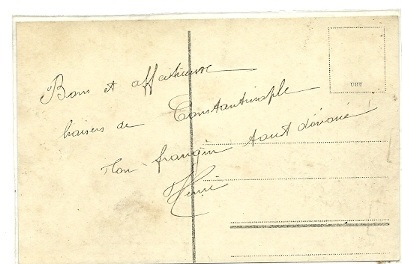 Bons et affectueux
baisers de Constantinople
Ton frangin tout dévoué!
Henri